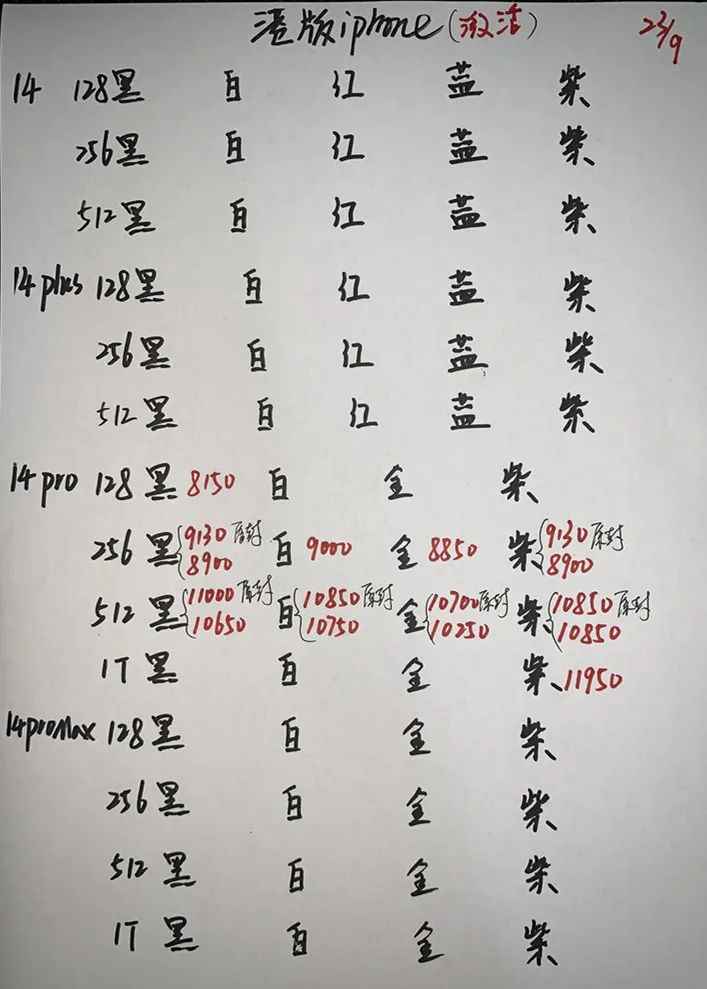 港版iphone(激活) 23/9
14 128黑 白 红 蓝 柴
256黑 白 红 蓝 柴
512黑 白 红 蓝 柴
14plus 128黑 白 红 蓝 柴
256黑 白 红 蓝 柴
512黑 白 红 蓝 柴
14pro 128黑 8150 白 金 柴
256黑{9130原封 白 9000 金 8850 柴{9130原封
8900 8900
512黑{11000原封 白{10850原封 金{10700原封 柴{10850原封
10650 10750 10250 10850
1T黑 白 金 柴、11950
14proMax 128黑 白 金 柴
256黑 白 金 柴
512黑 白 金 柴
1T黑 白 金 柴